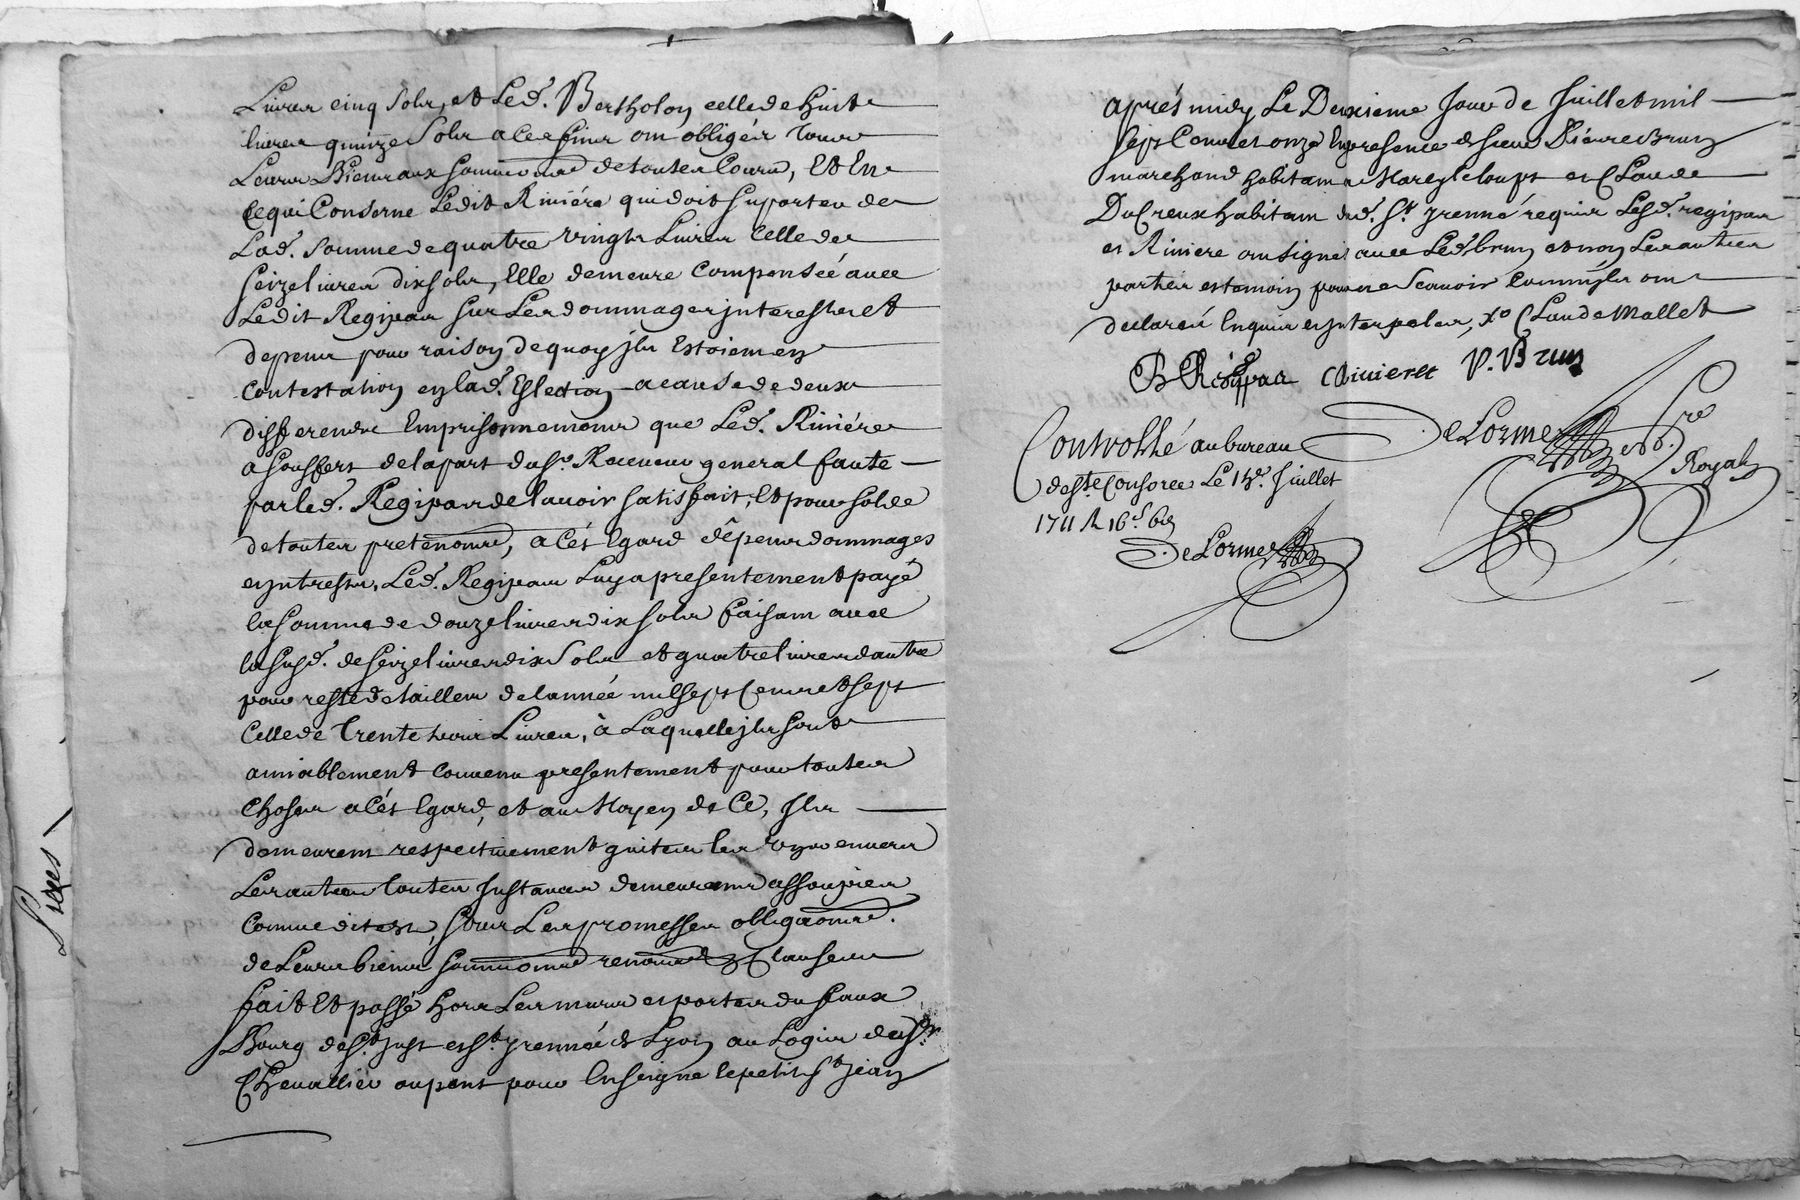 Livres cinq Sols, et Led. Bertholon celle de huit
livres quinze Sols a ces fins ont obligés tous
Leurs Biens aux soumissions de toutes Cours, Et En
Ce qui Conserne Ledit Riviére qui doit suporter de
Lad. Somme de quatre Vingts Livres Celle de
seize livres dix sols, Elle demeure Compensée avec
Ledit Regipas sur Les dommages jnterests et
depens pour raison de quoy jls Estoient en
Contestation en lad. Eslection a cause de deux
differents Emprisonnements que Led. Riviére
a souffert de la part du sr. Receveur general faute
par led. Regipas de l'avoir satisfait, Et pour solde
de toutes pretentions, a Cét Egard dépens dommages
et jntrests, Led. Regipas Luy a presentement payé
la somme de douze livres dix sols faisant avec
la susd. de seize livres dix Sols et quatre livres d'autre
pour reste de tailles de l'année mil sept Cents et sept
Celle de Trente trois Livres, à Laquelle jls sont
amiablement Convenu presentement pour toutes
Choses a Cét Egard, et au Moyen de Ce, Jls
demeurent respectivement quites les Uns envers
Les autres toutes Instances demeurants assoupies
Comme dit est, sous Les promesses obligaons.
de Leurs biens soumissions renonciaons & Clauses
fait Et passé hors Les murs et portes du faux
Bourg de St. Just et St. jrennée de Lyon au Logis du Sr
Chevallier ou pent pour Enseigne le petit St. jean
aprés midy Le Deuxieme Jour de Juillet mil
sept Cents et onze En presence de sieur Pierre Brun
marchand habitant a Marcy le loup et Claude
DuCreux habitant aud. St. jrenné requis Lesd. regipas
et Riviere ont signé avec Led. brun et non Les autres
parties et temoin pour ne Scavoir Comme jls ont
declaré Enquis et jnterpelés, Xo Claude Mallet
B Regipas C Riviere P. Brun
De Lorme Nre
Royal
Controllé au bureau
de Ste Consorce Le 13e. Juillet
1711 R 16s. 6d
De Lorme